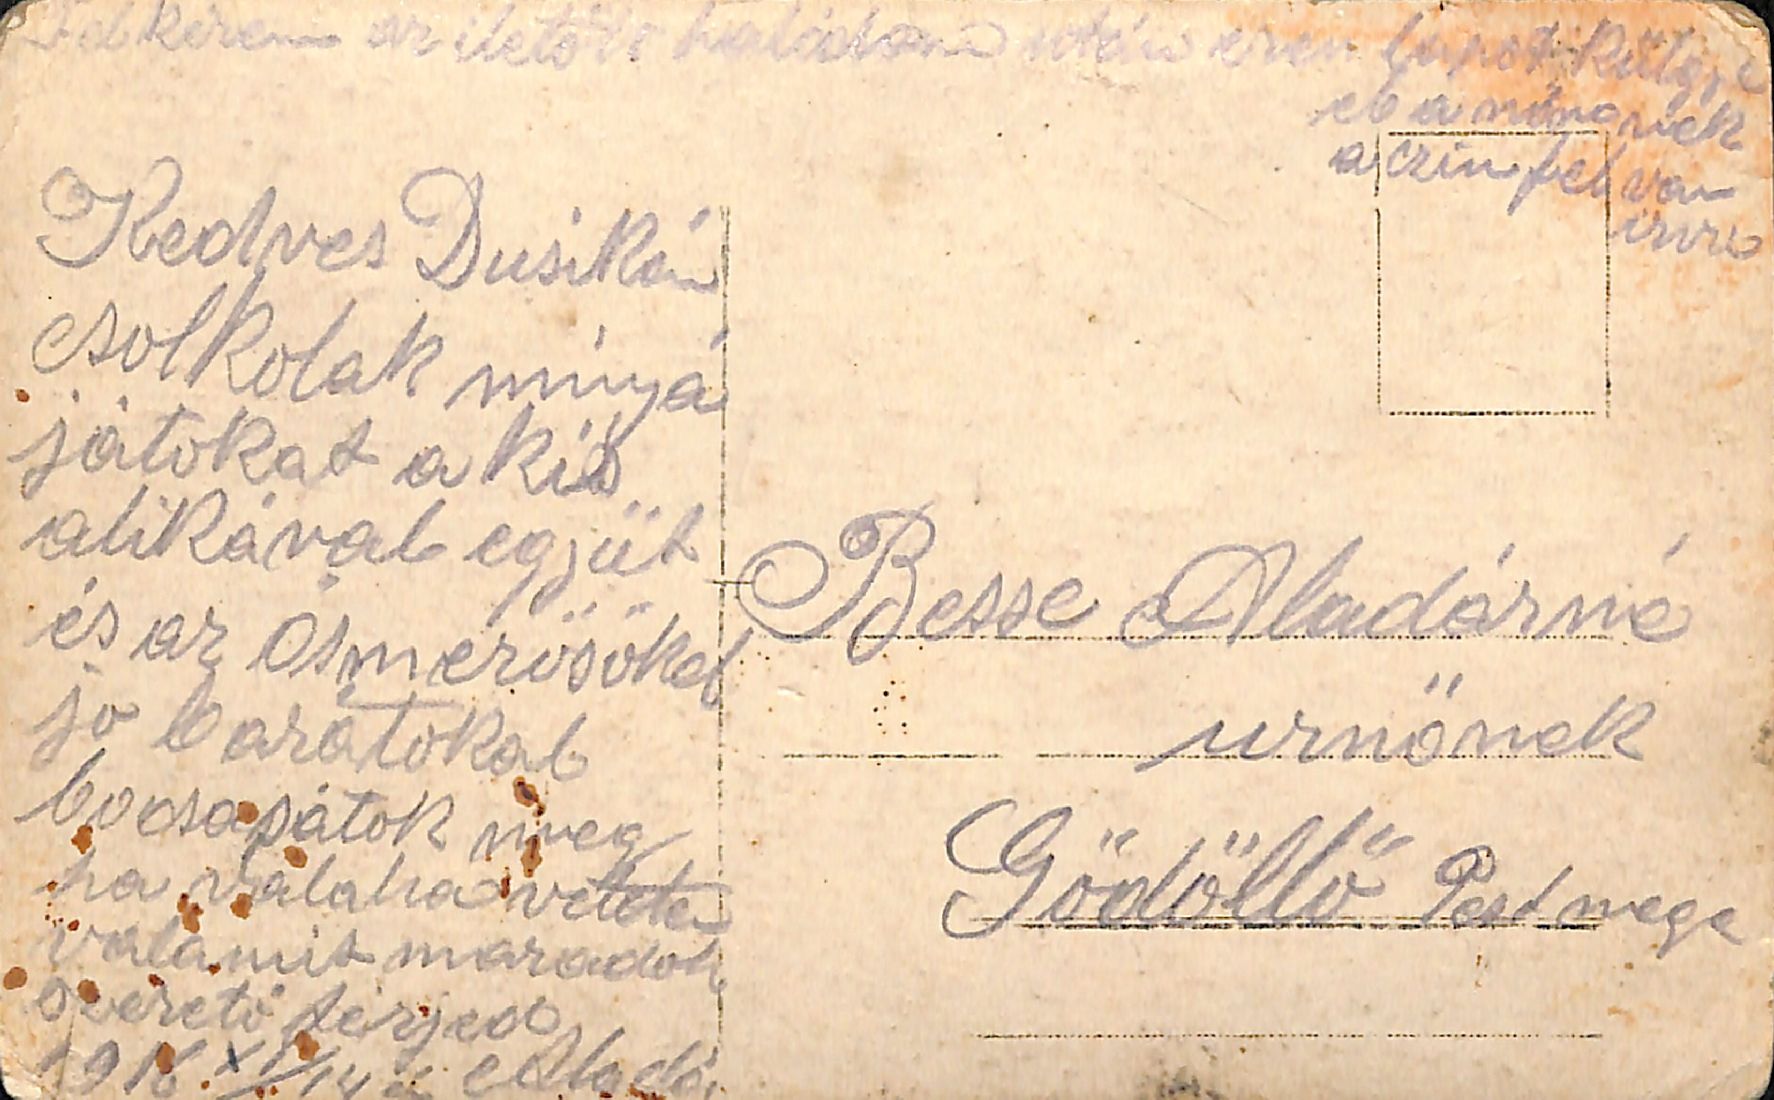 Fel kérem az iletőt halálom után ezen lapot küldje
el a nőmnek
a czim fel van
irva
Kedves Dusikám
csolkolak minyá
játokat a kis
alikával egyjüt
és az ösmerősökel
jo barátokal
bocsásátok meg
ha valaha vétetem
valamit maradok
szerető férjed
1916 XI/14 én Aladár
Besse Aladárné
urnőnek
Gödöllő Pest mege